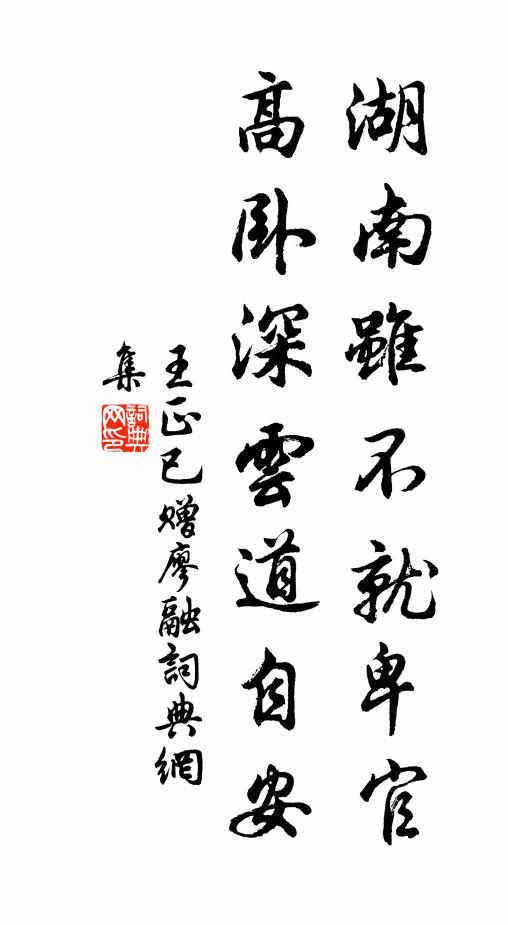 湖南雖不就卑官
高卧深雲道自安
王正已贈廖融詞典網
集
詞典
网印